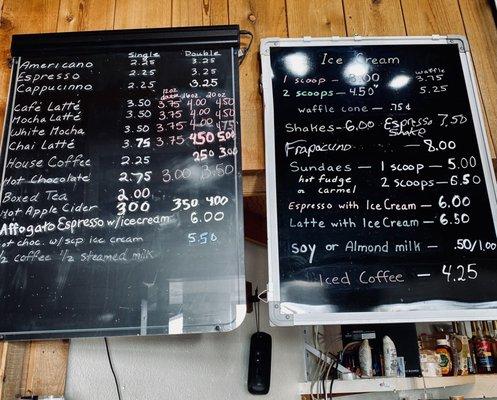 Single Double
Americano 2.25 3.25
Espresso 2.25 3.25
Cappucino 2.25 3.25
12 oz 16 oz 20 oz
Café Latté 3.50 3.75 4.00 4.50
Mocha Latté 3.50 3.75 4.00 4.50
White Mocha 3.50 3.75 4.00 4.75
Chai Latté 3.75 3.75 4.50 5.00
House Coffee 2.25 250 3.00
Hot Chocolate 2.75 3.00 3.50
Boxed Tea 2.00
Hot Apple Cider 300 350 400
Affogato Espresso w/icecream 6.00
Hot choc. w/scp ice cream 5.50
1/2 coffee 1/2 steamed milk
Ice Cream
1 scoop - 3.00 waffle 3.75
2 scoops - 4.50 5.25
waffle cone - .75¢
Shakes - 6.00 Espresso Shake 7.50
Frapacino - 8.00
Sundaes - 1 scoop - 5.00
hot fudge or carmel 2 scoops - 6.50
Espresso with Ice Cream - 6.00
Latte with Ice Cream - 6.50
Soy or Almond milk - .50/1.00
Iced Coffee - 4.25